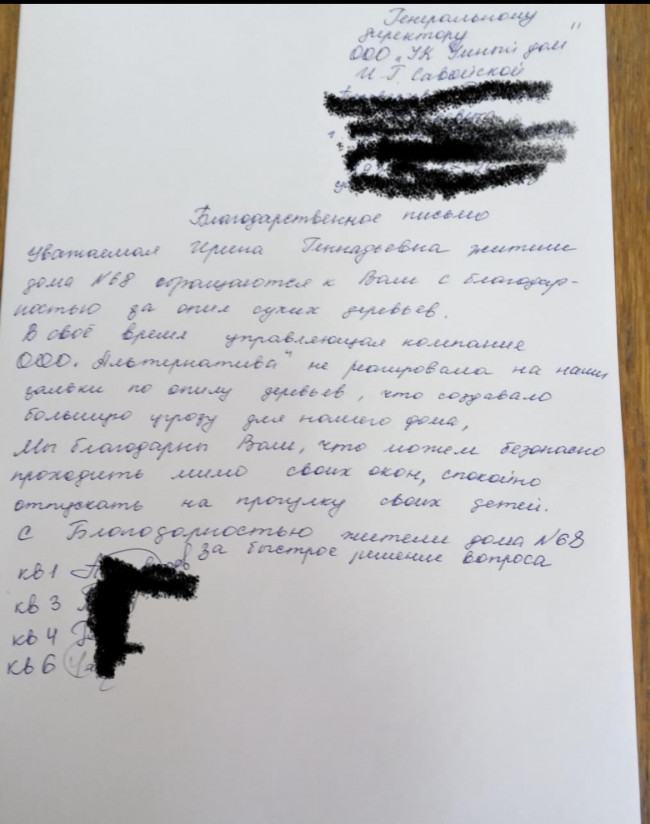 Генеральному
директору
ООО „УК Умный дом"
И.Г. Савойской
г.
Благодарственное письмо
Уважаемая Ирина Геннадьевна жители
дома №68 обращаются к Вам с благодар-
ностью за опил сухих деревьев.
В своё время управляющая компание
ООО „Альтернатива" не реагировала на наши
заявки по опилу деревьев, что создавало
большую угрозу для нашего дома,
Мы благодарны Вам, что можем безопасно
проходить мимо своих окон, спокойно
отпускать на прогулку своих детей.
С Благодарностью жители дома №68
за быстрое решение вопроса
кв 1
кв 3
кв 4
кв 6